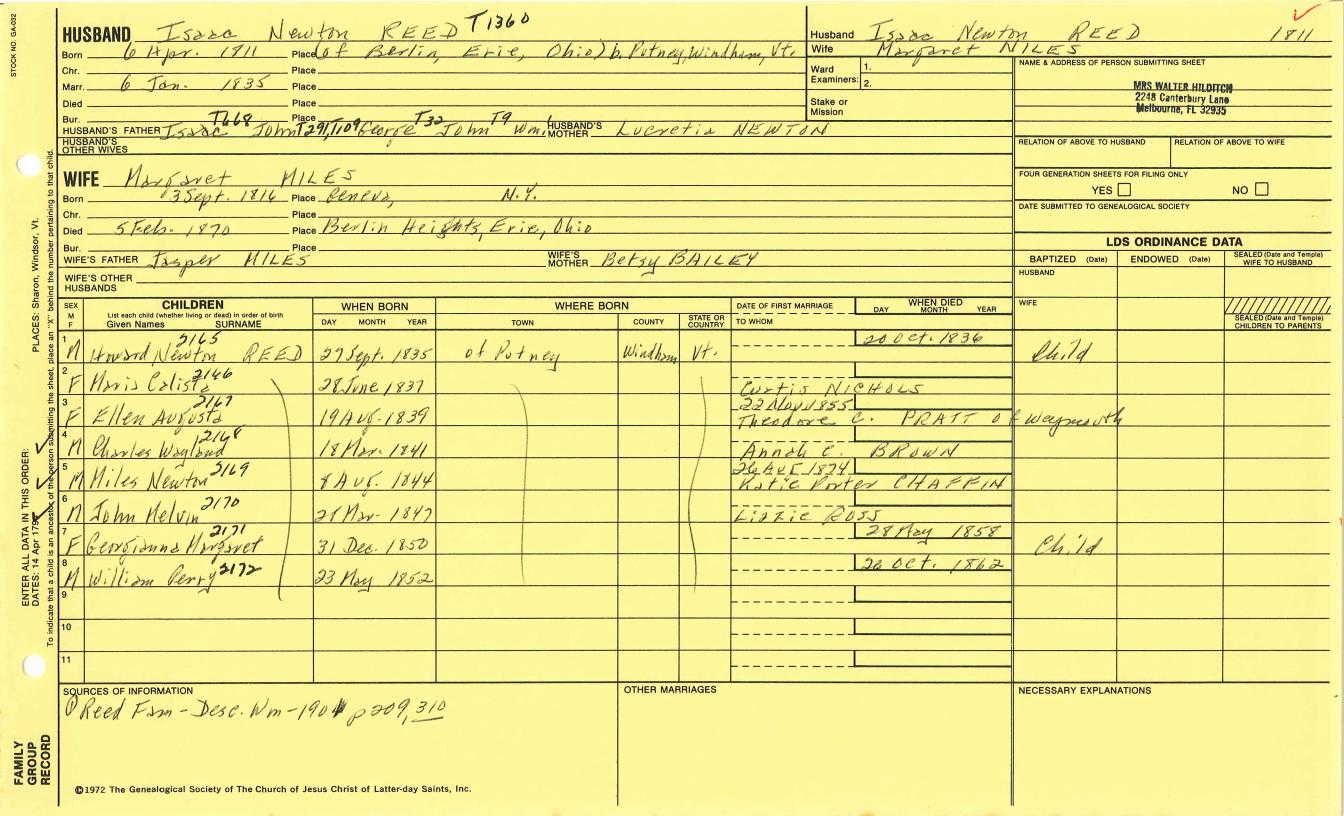 STOCK NO. GA-032
HUSBAND Isaac Newton REED T1360
Born 6 Apr. 1811 Place (of Berlin, Erie, Ohio) b. Putney, Windham, Vt.
Chr. Place
Marr. 6 Jan. 1835 Place
Died Place
Bur. Place
T668 T291, T109 T32 T9
HUSBAND'S FATHER Isaac John George John Wm. HUSBAND'S MOTHER Lucretia NEWTON
HUSBAND'S OTHER WIVES
Husband Isaac Newton REED 1811
Wife Margaret MILES
Ward Examiners: 1.
2.
Stake or Mission
NAME & ADDRESS OF PERSON SUBMITTING SHEET
MRS WALTER HILDITCH
2248 Canterbury Lane
Melbourne, FL 32935
RELATION OF ABOVE TO HUSBAND RELATION OF ABOVE TO WIFE
FOUR GENERATION SHEETS FOR FILING ONLY
YES NO
DATE SUBMITTED TO GENEALOGICAL SOCIETY
LDS ORDINANCE DATA
BAPTIZED (Date) ENDOWED (Date) SEALED (Date and Temple) WIFE TO HUSBAND
HUSBAND
WIFE
SEALED (Date and Temple) CHILDREN TO PARENTS
WIFE Margaret MILES
Born 3 Sept. 1816 Place Geneva, N.Y.
Chr. Place
Died 5 Feb. 1870 Place Berlin Heights, Erie, Ohio
Bur. Place
WIFE'S FATHER Jasper MILES WIFE'S MOTHER Betsy BAILEY
WIFE'S OTHER HUSBANDS
SEX M F CHILDREN WHEN BORN WHERE BORN DATE OF FIRST MARRIAGE WHEN DIED
List each child (whether living or dead) in order of birth
Given Names SURNAME DAY MONTH YEAR TOWN COUNTY STATE OR COUNTRY TO WHOM DAY MONTH YEAR
1 M Howard Newton REED 2165 29 Sept. 1835 of Putney Windham Vt. 20 Oct. 1836 Child
2 F Maris Calista 2166 28 June 1837 Curtis NICHOLS
3 F Ellen Augusta 2167 19 Aug. 1839 22 Nov 1855 Theodore C. PRATT of Waymouth
4 M Charles Wayland 2168 18 Mar. 1841 Annah C. BROWN
5 M Miles Newton 2169 8 Aug. 1844 26 Aug 1874 Katie Porter CHAFFIN
6 M John Melvin 2170 21 Mar. 1847 Lizzie ROSS
7 F Georgianna Margaret 2171 31 Dec. 1850 28 May 1858 Child
8 M William Perry 2172 23 May 1852 20 Oct. 1862
9
10
11
SOURCES OF INFORMATION
① Reed Fam - Desc. Wm - 1901 p 209, 310
OTHER MARRIAGES
NECESSARY EXPLANATIONS
©1972 The Genealogical Society of The Church of Jesus Christ of Latter-day Saints, Inc.
FAMILY GROUP RECORD
ENTER ALL DATA IN THIS ORDER:
DATES: 14 Apr 179
PLACES: Sharon, Windsor, Vt.
To indicate that a child is an ancestor of the person submitting the sheet, place an "X" behind the number pertaining to that child.